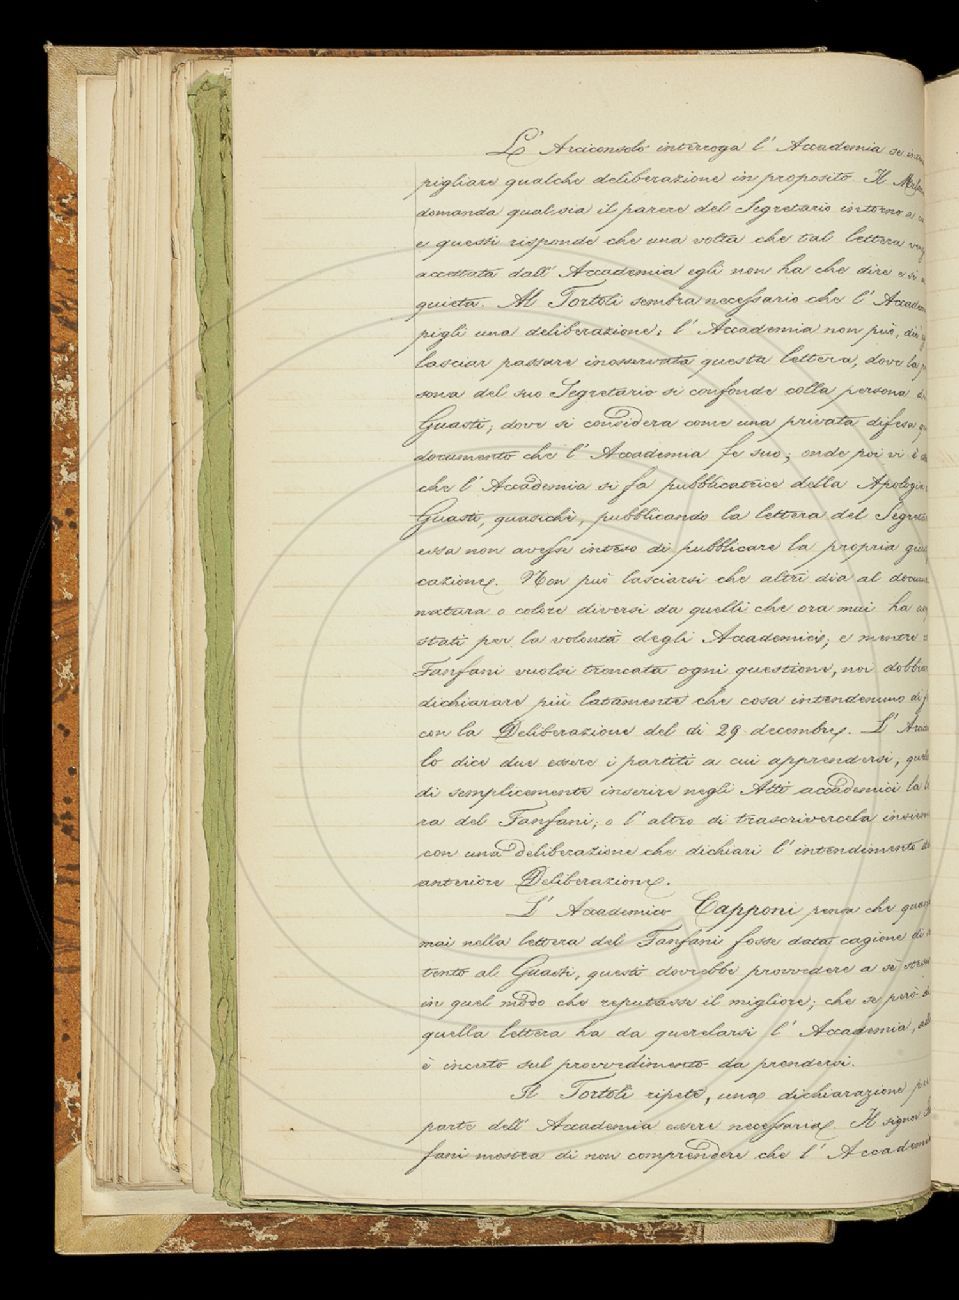 L' Arciconsolo interroga l' Accademia se
pigliare qualche deliberazione in proposito. Il
domanda qual sia il parere del Segretario intorno a
e questi risponde che una volta che tal lettera
accettata dall' Accademia egli non ha che dire e si
quieta. Al Tortoli sembra necessario che l' Accade
pigli una deliberazione; l' Accademia non può,
lasciar passare inosservata questa lettera, dove la
sona del suo Segretario si confonde colla persona
Guasti; dove si considera come una privata difesa
documento che l' Accademia fe suo; onde poi vi è
che l' Accademia si fa pubblicatrice della Apologia
Guasti, quasichè, pubblicando la lettera del Segret
essa non avesse inteso di pubblicare la propria
cazione. Non può lasciarsi che altri dia al docum
natura o colore diversi da quelli che ora mai ha
stati per la volontà degli Accademici; e mentre
Fanfani vuolsi troncata ogni questione, noi dobbia
dichiarare più latamente che cosa intendemmo di
con la Deliberazione del di 29 decembre. L' Arci
lo dice due essere i partiti a cui apprendersi,
di semplicemente inserire negli Atti accademici la
ra del Fanfani; o l' altro di trascrivercela insiem
con una deliberazione che dichiari l' intendimento
anteriore Deliberazione.
L' Accademico Capponi pensa che
mai nella lettera del Fanfani fosse data cagione di
tento al Guasti, questi dovrebbe provvedere a sè
in quel modo che reputasse il migliore; che se però
quella lettera ha da querelarsi l' Accademia,
è incerto sul provvedimento da prendersi.
Il Tortoli ripete, una dichiarazione
parte dell' Accademia essere necessaria. Il signor
fani mostra di non comprendere che l' Accadem